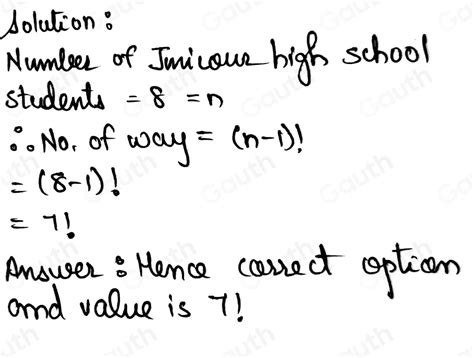 Solution :
Number of Junious high school
students = 8 = n
∴ No. of way = (n-1)!
= (8-1)!
= 7!
Answer : Hence correct option
and value is 7!